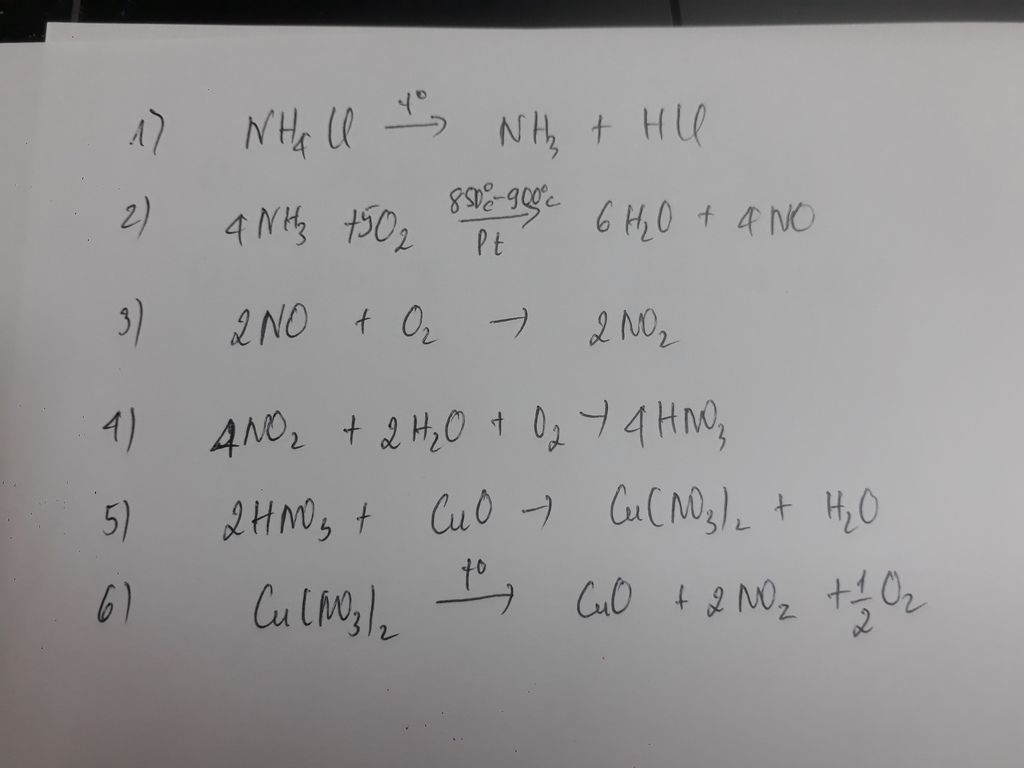 1) NH₄Cl →(t°) NH₃ + HCl
2) 4NH₃ + 5O₂ →(850°C-900°C, Pt) 6H₂O + 4NO
3) 2NO + O₂ → 2NO₂
4) 4NO₂ + 2H₂O + O₂ → 4HNO₃
5) 2HNO₃ + CuO → Cu(NO₃)₂ + H₂O
6) Cu(NO₃)₂ →(t°) CuO + 2NO₂ + 1/2 O₂